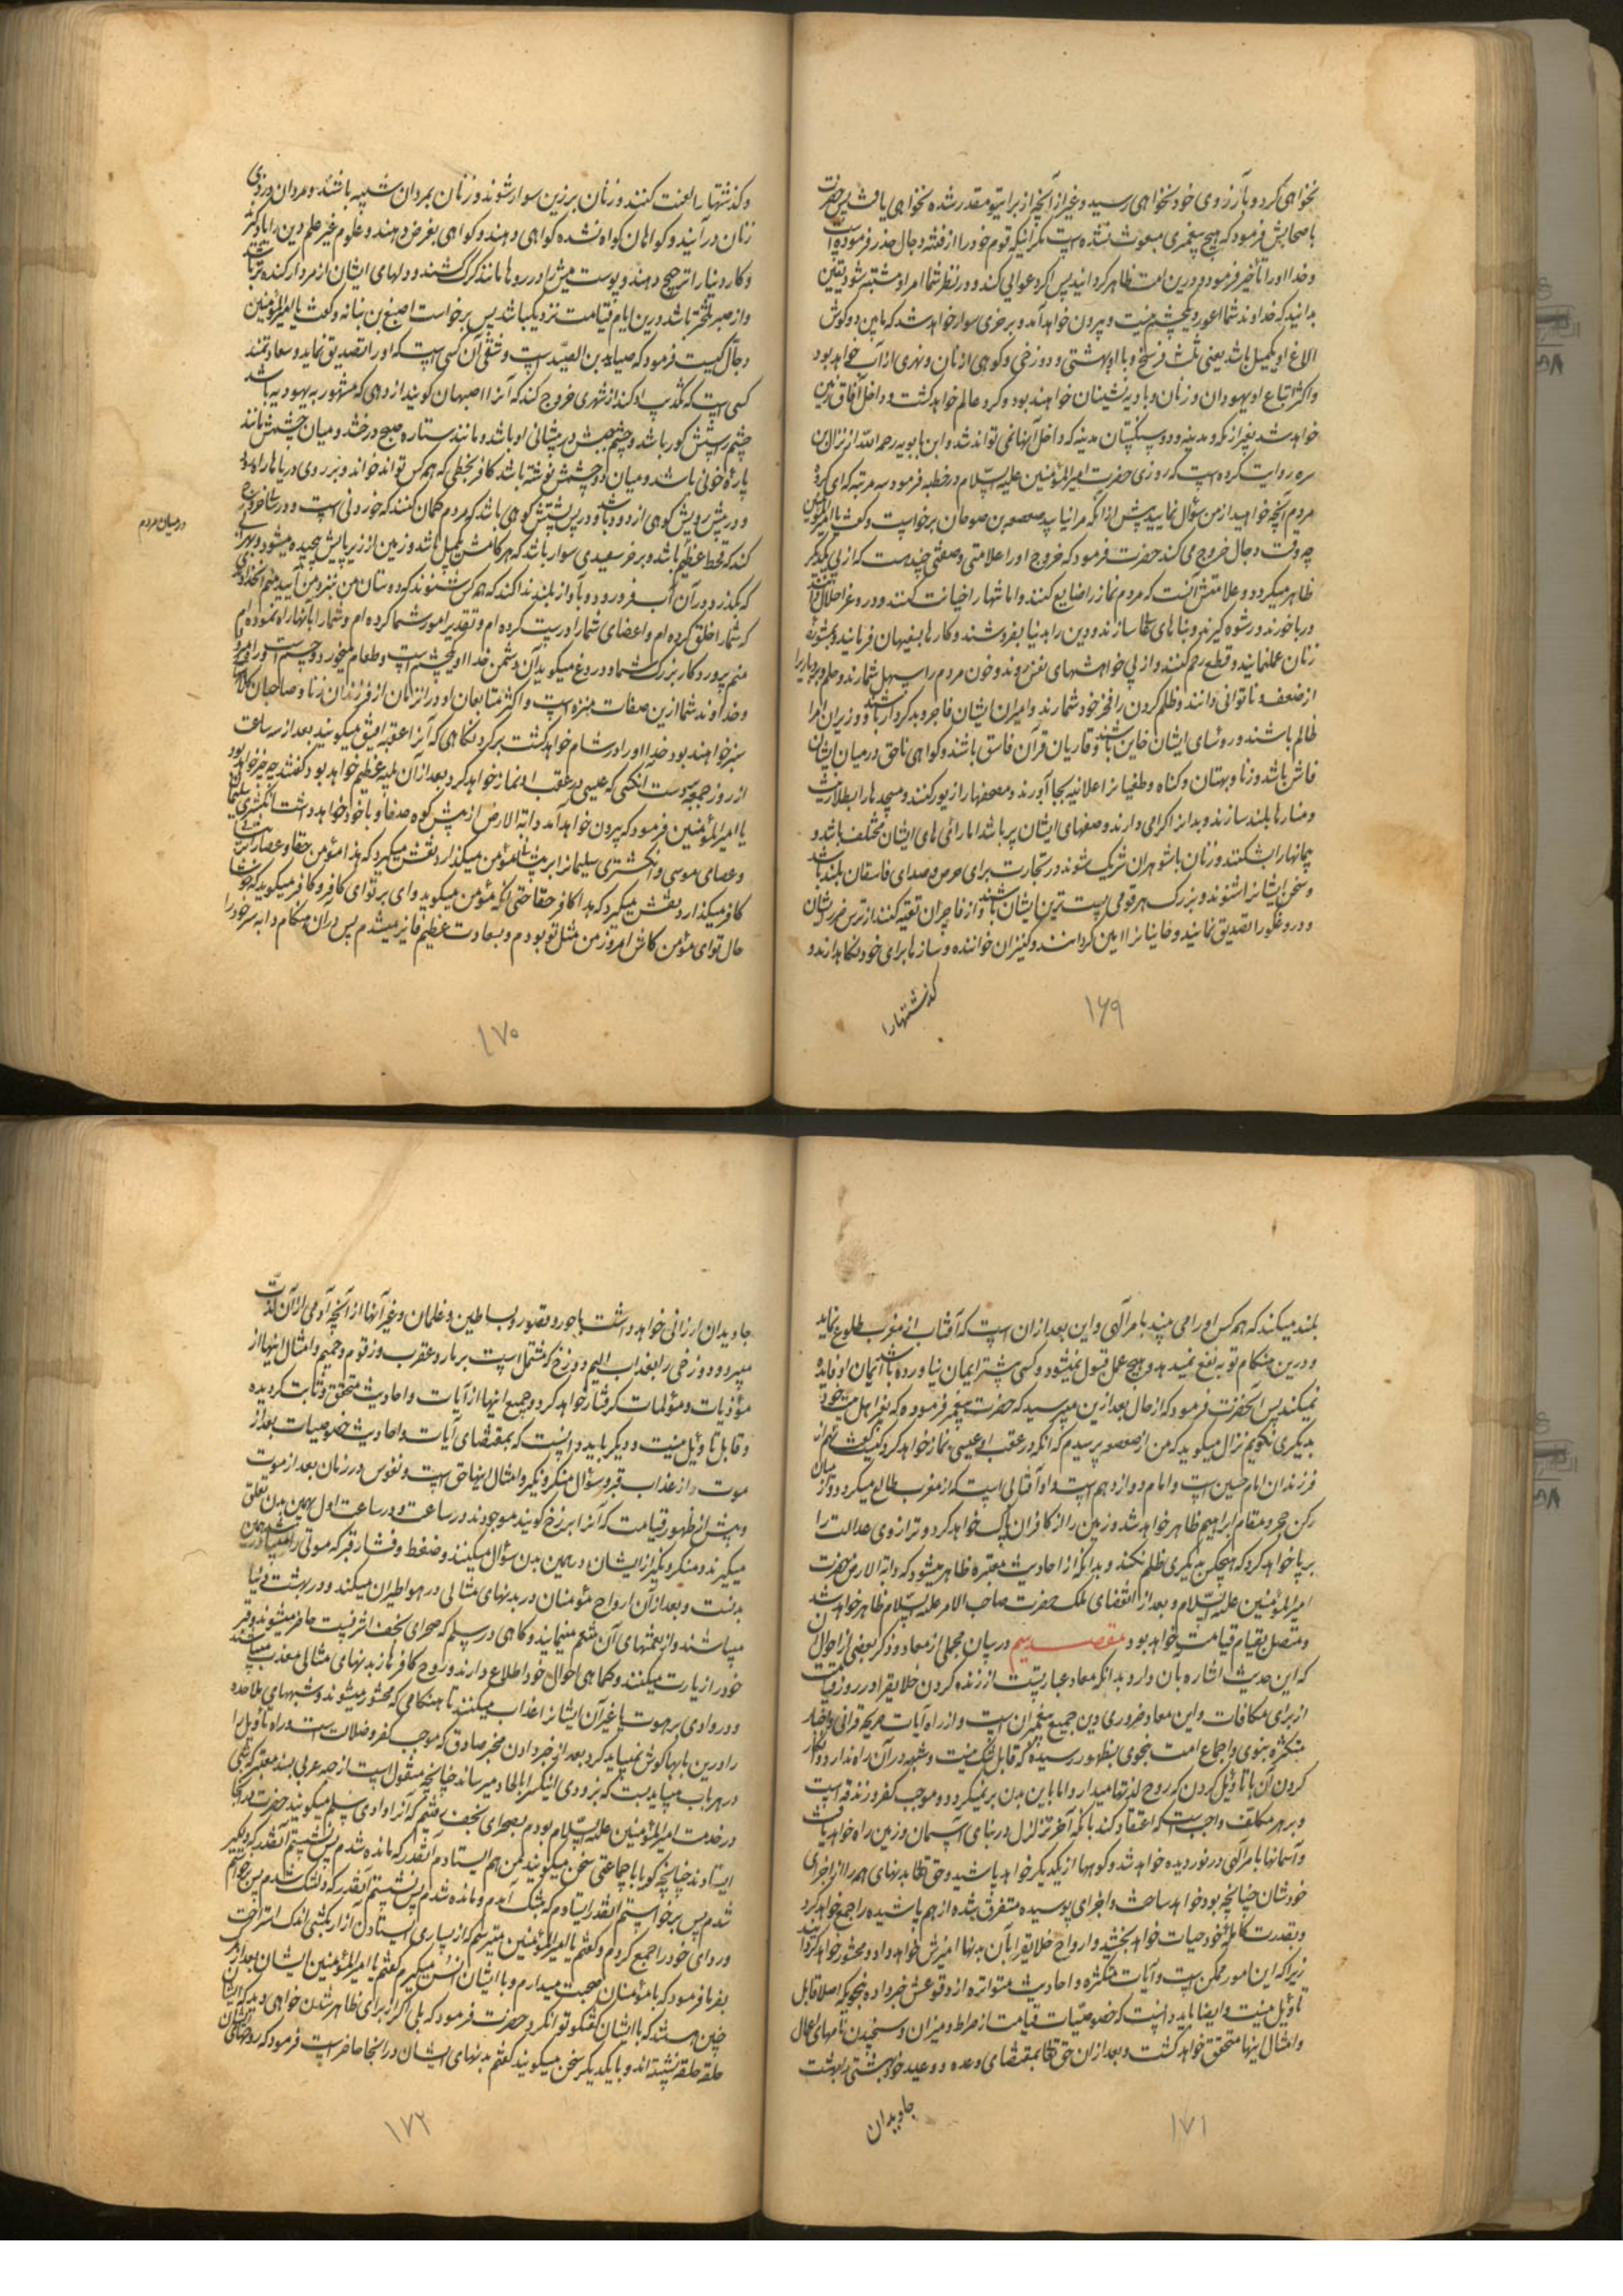 نخواهی کرد و بآرزوی خود نخواهی رسید و غیر از آنچه از برای تو مقدر شده نخواهی یافت پس حضرت
باصحابش فرمود که هیچ پیغمبری مبعوث نشده است مگر اینکه قوم خود را از فتنه دجال حذر فرموده است
و خدا او را تأخیر فرموده و درین امت ظاهر گردانید پس اگر دعوایی کند و در نظر شما امر او مشتبه شود یقین
بدانید که خداوند شما اعور و یکچشم نیست و بیرون خواهد آمد و بر خری سوار خواهد شد که مابین دو گوش
الاغ او یکمیل باشد یعنی ثلث فرسخ و با او بهشتی و دوزخی و کوهی از نان و نهری از آب خواهد بود
و اکثر اتباع او یهودان و زنان و بادیه نشینان خواهند بود و گرد عالم خواهد گشت و داخل آفاق زمین
خواهد شد بغیر از مکه و مدینه و دو سنگستان مدینه که داخل آنها نمی تواند شد و ابن بابویه رحمه الله از نزال بن
سبره روایت کرده است که روزی حضرت امیرالمؤمنین علیه السلام در خطبه فرمود سه مرتبه که ای گروه
مردم آنچه خواهید از من سؤال نمایید پیش از آنکه مرا نیابید صعصعه بن صوحان برخواست و گفت یا امیرالمؤمنین
چه وقت دجال خروج می کند حضرت فرمود که خروج او را علامتی و صفتی چندست که از پی یکدیگر
ظاهر میگردد و علامتش آنست که مردم نماز را ضایع کنند و امانتها را خیانت کنند و دروغ را حلال دانند
و ربا خورند و رشوه گیرند و بناهای محکم سازند و دین را بدنیا بفروشند و کارها بسفیهان فرمایند و بمشوره
زنان عمل نمایند و قطع رحم کنند و از پی خواهشهای نفس روند و خون مردم را سهل شمارند و حلم و بردباری را
از ضعف و ناتوانی دانند و ظلم کردن را فخر خود شمارند و امیران ایشان فاجر و بدکردار باشند و وزیران امرا
ظالم باشند و رؤسای ایشان خاین باشند و قاریان قرآن فاسق باشند و گواهی ناحق در میان ایشان
فاش باشد و زنا و بهتان و گناه و طغیان را علانیه بجا آورند و مصحفها را زیور کنند و مسجدها را بطلا زینت
و منارها بلند سازند و بدان را گرامی دارند و صفهای ایشان پر باشد اما رائی های ایشان مختلف باشد و
پیمانها را بشکنند و زنان با شوهران شریک شوند در تجارت برای حرص و صدای فاسقان بلند باشد
و سخن ایشان را شنوند و بزرگ هر قومی پست ترین ایشان باشند و از فاجران تقیه کنند از ترس ضرر ایشان
و دروغگو را تصدیق نمایند و خاینان را امین گردانند و کنیزان خواننده و سازها برای خود نگاهدارند و
گذشتها را
۱۶۹
و گذشتها را لعنت کنند و زنان بر زین سوار شوند و زنان بمردان شبیه باشند و مردان در زی
زنان در آیند و گواهان گواه نشده گواهی دهند و گواهی بغرض دهند و علوم غیر علم دین را یاد گیرند
و کار دنیا را ترجیح دهند و پوست میش را در روها مانند گرگ کشند و دلهای ایشان از مردار گنده تر باشد
و از صبر تلختر باشد درین ایام قیامت نزدیک باشد پس برخواست اصبغ بن نباته و گفت یا امیرالمؤمنین
دجال کیست فرمود که صیاید بن الصید است و شقی آن کسی است که او را تصدیق نماید و سعادتمند
کسی است که تکذیب او کند از شهری خروج کند که آنرا اصبهان گویند از دهی که مشهور به یهودیه باشد
چشم راستش کور باشد و چشم چپش در پیشانی او باشد و مانند ستاره صبح درخشد و میان چشمش مانند
پاره خونی باشد و میان دو چشمش نوشته باشد کافر بخطی که همه کس تواند خواند و بر روی دریاها راه رود
و در پیش رویش کوهی از دود باشد و در پس پشتش کوهی باشد که مردم گمان کنند که خوردنی است و در سالی خروج
کند که قحط عظیم باشد و بر خر سفیدی سوار باشد که هر گامش یکمیل باشد و زمین از زیر پایش پیچیده میشود و بهر آبی
که بگذرد و در آن آب فرو رود و بآواز بلند ندا کند که همه کس شنوند که دوستان من بنزد من آیید منم آن خدائی
که شما را خلق کرده ام و اعضای شما را درست کرده ام و تقدیر امور شما کرده ام و شما را بآنها راه نموده ام
منم پروردگار بزرگ شما و دروغ میگوید آن دشمن خدا او یکچشم است و طعام میخورد و
و خداوند شما ازین صفات منزه است و اکثر متابعان او در آن زمان از فرزندان زنا و صاحبان کلاه
سبز خواهند بود خدا او را در شام خواهد کشت بر گردنگاهی که آنرا عقبه افیق میگویند بعد از سه ساعت
از روز جمعه بر دست آنکسی که عیسی در عقب او نماز خواهد کرد بعد از آن بلیه عظیم خواهد بود گفتند چه چیز خواهد بود
یا امیرالمؤمنین فرمود که بیرون خواهد آمد دابة الارض از پیش کوه صفا و با خود خواهد داشت انگشتری سلیمان
و عصای موسی و انگشتری سلیمان را بر پیشانی مؤمن میگذارد نقش میگیرد که هذا مؤمن حقا و عصا را بر پیشانی
کافر میگذارد نقش میگیرد که هذا کافر حقا حتی آنکه مؤمن میگوید وای بر تو ای کافر و کافر میگوید که خوشا
حال تو ای مؤمن کاش امروز من مثل تو بودم و بسعادت عظیم فایز میشدم پس در آن هنگام دابه سر خود را
در میان مردم
۱۷۰
بلند میکند که همه کس او را می بیند بامر الهی و این بعد از آن است که آفتاب از مغرب طلوع نماید
و درین هنگام توبه نفع نمیدهد و هیچ عمل قبول نمیشود و کسی پیشتر ایمان نیاورده باشد ایمان او فایده
نمیکند پس آنحضرت فرمود که از حال بعد ازین مپرسید که حضرت پیغمبر فرموده که بغیر اهل بیت خود
بدیگری نگویم نزال میگوید که من از صعصعه پرسیدم که آنکه در عقب او عیسی نماز خواهد کرد کیست گفت نهم از
فرزندان امام حسین است و امام دوازدهم است و او آفتابی است که از مغرب طالع میگردد و از میان
رکن حجر و مقام ابراهیم ظاهر خواهد شد و زمین را از کافران پاک خواهد کرد و ترازوی عدالت را
برپا خواهد کرد که هیچکس بدیگری ظلم نکند و بدانکه از احادیث معتبره ظاهر میشود که دابة الارض حضرت
امیرالمؤمنین علیه السلام و بعد از انقضای ملک حضرت صاحب الامر علیه السلام ظاهر خواهد شد
و متصل بقیام قیامت خواهد بود مقصد سیم در بیان مجملی از معاد و ذکر بعضی از احوال آن
که این حدیث اشاره بآن دارد بدانکه معاد عبارتست از زنده کردن خلایق را در روز قیامت
از برای مکافات و این معاد ضروری دین جمیع پیغمبران است و از راه آیات صریحه قرآنی و اخبار
متکثره نبوی و اجماع امت بنحوی بظهور رسیده که قابل شک نیست و شبهه در آن راه ندارد و انکار
کردن آن یا تأویل کردن که روح لذتها میدارد اما باین بدن برنمیگردد موجب کفر و زندقه است
و بر هر مکلف واجب است که اعتقاد کند بآنکه آخر تزلزل در بنای آسمان و زمین راه خواهد یافت
و آسمانها بامر الهی در نوردیده خواهد شد و کوهها از یکدیگر خواهد پاشید و حق تعالی بدنهای همه را از اجزای
خودشان چنانچه بود خواهد ساخت و اجزای پوسیده متفرق شده از هم پاشیده را جمع خواهد کرد
و بقدرت کامله خود حیات خواهد بخشید و ارواح خلایق را بآن بدنها آمیزش خواهد داد و محشور خواهد گردانید
زیرا که این امور ممکن است و آیات متکثره و احادیث متواتره از وقوعش خبر داده بنحوی که اصلا قابل
تأویل نیست و ایضا باید دانست که خصوصیات قیامت از صراط و میزان و سنجیدن نامهای اعمال
و امثال اینها متحقق خواهد گشت و بعد از آن حق تعالی بمقتضای وعده و وعید خود بهشتی را بهشت
جاویدان
۱۷۱
جاویدان ارزانی خواهد داشت با حور و قصور و بساطین و غلمان و غیر آنها از آنچه آدمی از آن لذت
میبرد و دوزخی را بعذاب الیم دوزخ که مشتمل است بر مار و عقرب و زقوم و حمیم و امثال اینها از
مؤذیات و مؤلمات گرفتار خواهد کرد و جمیع اینها از آیات و احادیث متحقق و ثابت گردیده
و قابل تأویل نیست و دیگر باید دانست که بمقتضای آیات و احادیث خصوصیات بعد از
موت از عذاب قبر و سؤال منکر و نکیر و امثال اینها حق است و نفوس در زمان بعد از موت
و پیش از ظهور قیامت که آنرا برزخ گویند موجودند در ساعت و در ساعت اول بهمین بدن تعلق
میگیرند و منکر و نکیر از ایشان در همین بدن سؤال میکنند و ضغط و فشار قبر که موتی را میباشد در همین
بدنست و بعد از آن ارواح مؤمنان در بدنهای مثالی در هوا طیران میکند و در بهشت دنیا
میباشند و از نعمتهای آن متنعم مینمایند و گاهی در وادی السلم که صحرای نجف اشرفست حاضر میشوند و قبر
خود را زیارت میکنند و کماهی احوال خود اطلاع دارند و روح کافر نیز بدنهای مثالی معذب میباشند
و در وادی برهوت یا غیر آن ایشان را عذاب میکنند تا هنگامی که محشور میشوند و شبههای ملاحده
را درین بابها گوش نمیباید کرد بعد از خبر دادن مخبر صادق که موجب کفر و ضلالت است و راه تأویل را
در هر باب میباید بست که بزودی اینکس را بالحاد میرساند چنانچه منقول است از حبه عرنی بسند معتبر که شبی
در خدمت امیرالمؤمنین علیه السلام بودم بصحرای نجف رفتم که آنرا وادی السلم میگویند حضرت در آنجا
ایستادند چنانچه گویا با جماعتی سخن میگویند من هم ایستادم آنقدر که مانده شدم پس نشستم آنقدر که دلگیر
شدم پس برخواستم آنقدر ایستادم که بتنگ آمدم و مانده شدم پس نشستم آنقدر که دلتنگ شدم پس برخواستم
و ردای خود را جمع کردم و گفتم یا امیرالمؤمنین میترسم که از بسیاری ایستادن آزار بکشی اندک استراحت
بفرما فرمود که با مؤمنان صحبت میدارم و با ایشان انس میگیرم گفتم یا امیرالمؤمنین ایشان بعد از مردن
چنین هستند که با ایشان گفتگو توان کرد حضرت فرمود که بلی اگر از برای تو ظاهر شدن خواهی دید که ایشان
حلقه حلقه نشسته اند و با یکدیگر سخن میگویند گفتم بدنهای ایشان در اینجا حاضر است فرمود که روحهای ایشان
۱۷۲